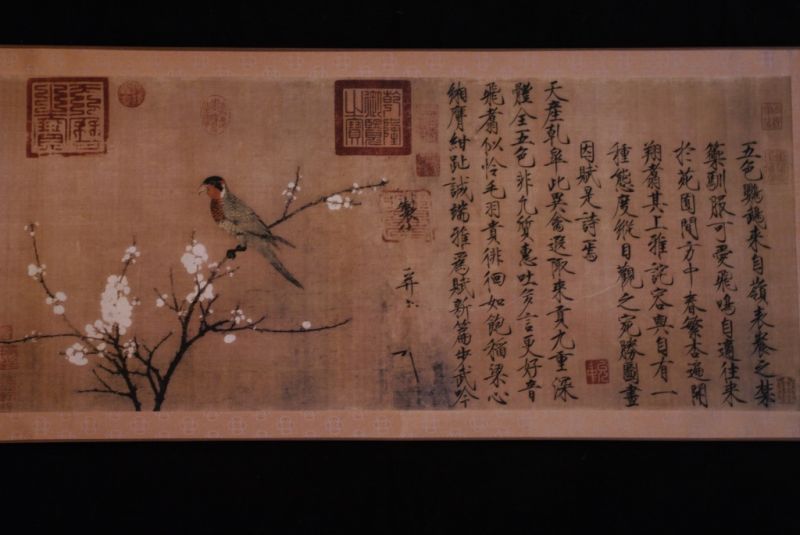 五色鸚鵡來自嶺表養之禁
籞馴服可愛飛鳴自適往來
於苑囿間方中春繁杏遍開
翔翥其上雅詫容與自有一
種態度縱目觀之宛勝圖畫
因賦是詩焉
天產乾皋此異禽遐陬來貢九重深
體全五色非凡質惠吐多言更好音
飛翥似憐毛羽貴徘徊如飽稻粱心
緗膺紺趾誠端雅為賦新篇步武吟
乾隆
御覽
之寶